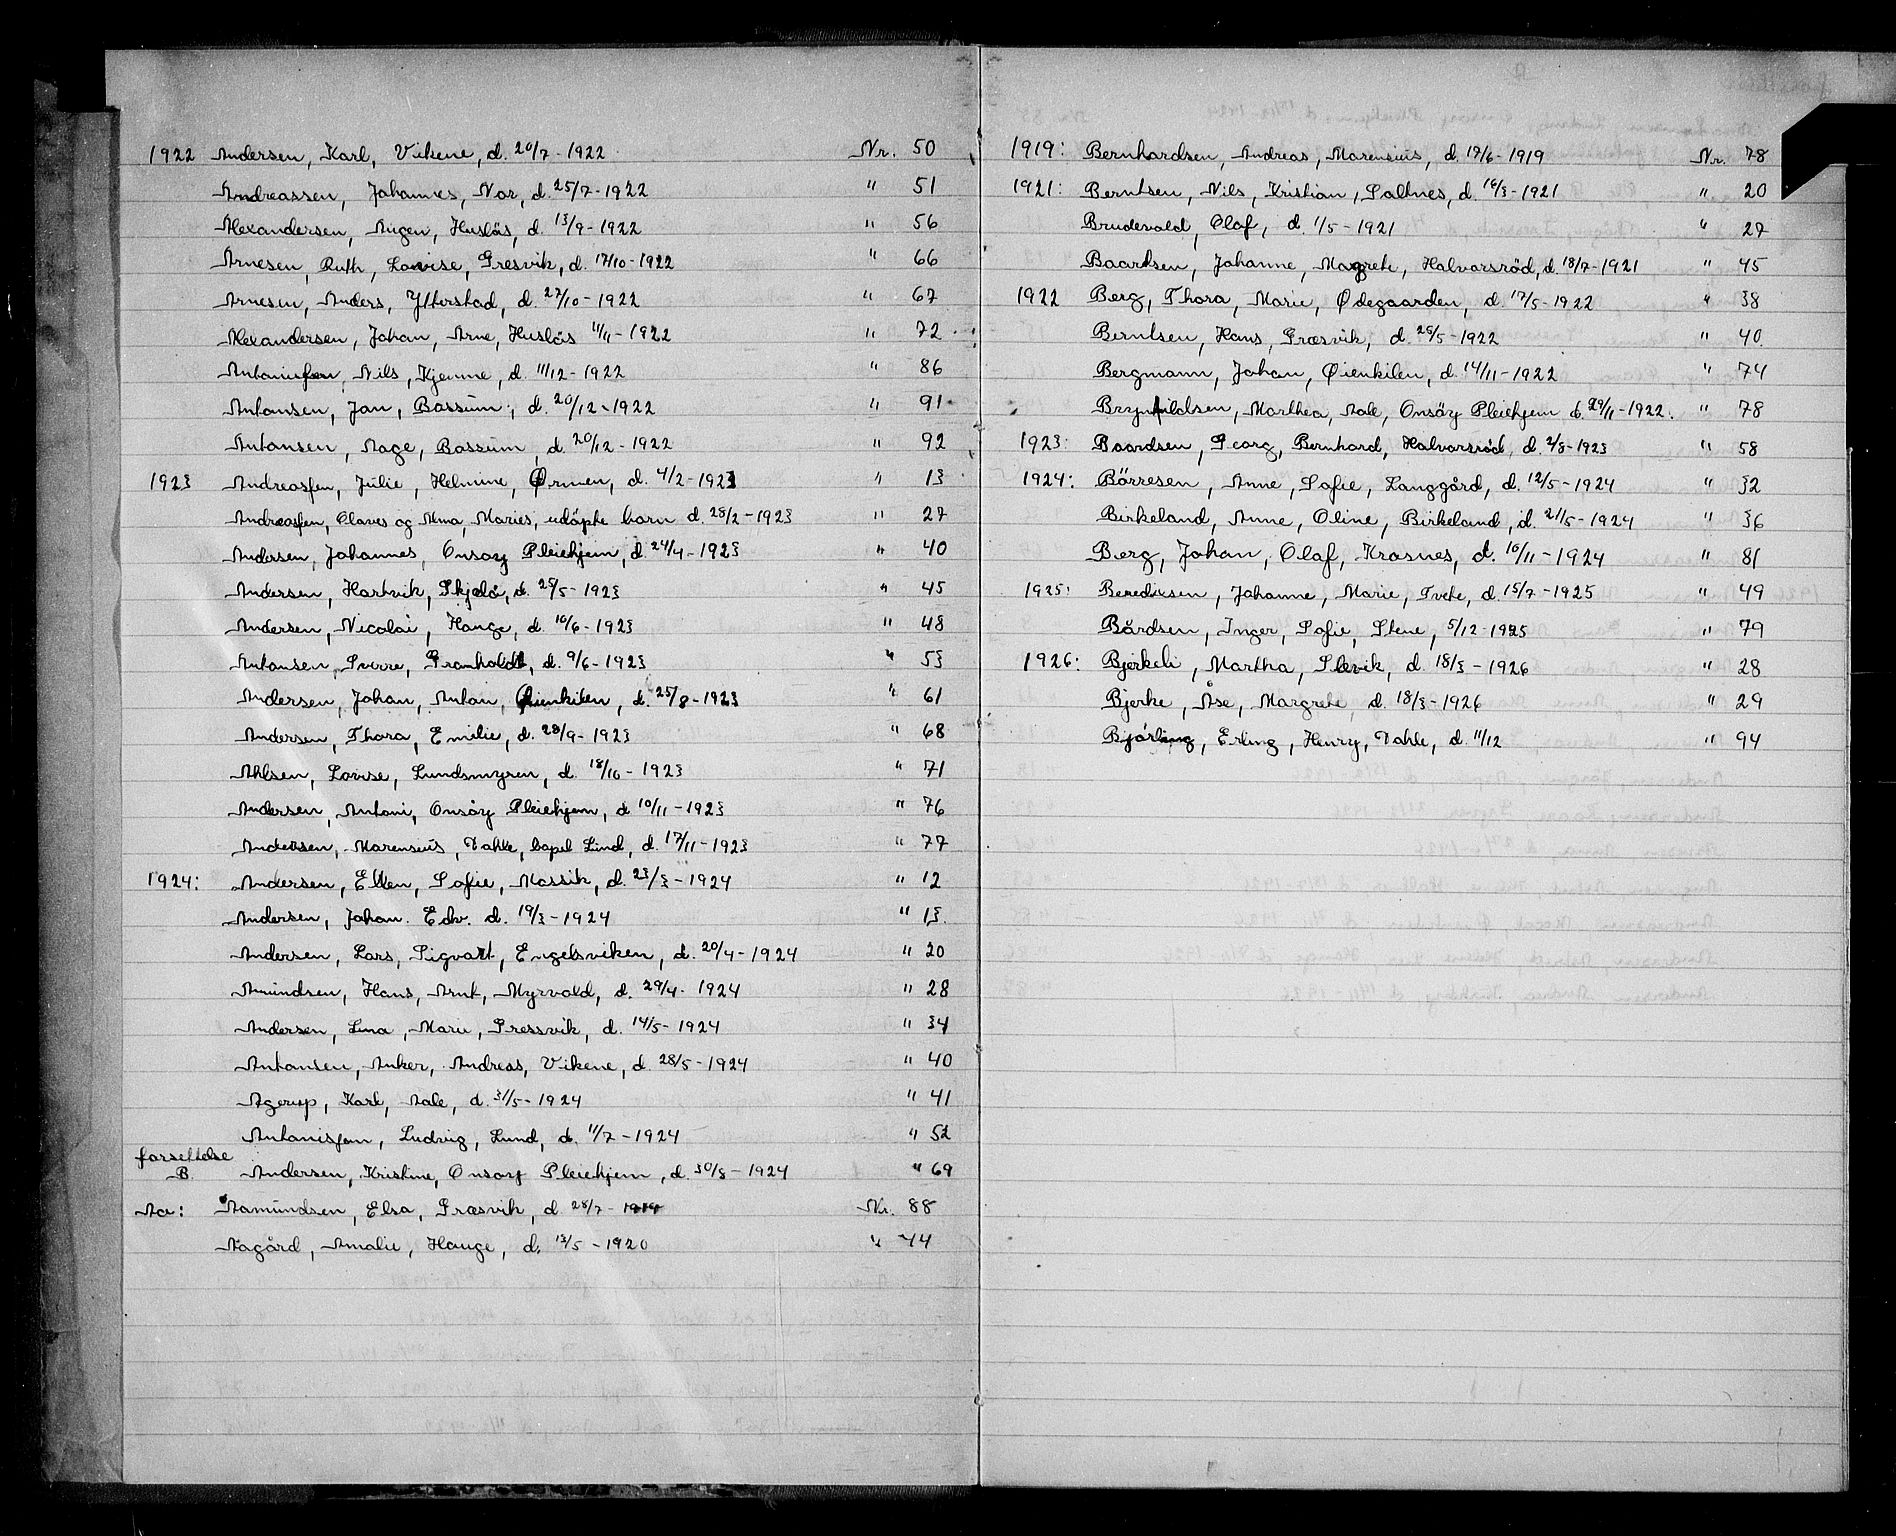 1922 Andersen, Karl, Vikene, d. 20/7 - 1922 Nr. 50
Andreassen, Johannes, Nor, d. 25/7 - 1922 " 51
Alexandersen, Augen, Huslös, d. 13/9 - 1922 " 56
Arnesen, Ruth, Lovise, Gresvik, d. 17/10 - 1922 " 66
Arnesen, Anders, Ytterstad, d. 27/10 - 1922 " 67
Alexandersen, Johan, Arne, Huslös 11/11 - 1922 " 72
Antonissen, Nils, Kjenne, d. 11/12 - 1922 " 86
Antonsen, Jan, Bossum, d. 20/12 - 1922 " 91
Antonsen, Aage, Bossum, d. 20/12 - 1922 " 92
1923 Andreassen, Julie, Helmine, Ørmen, d. 4/2 - 1923 " 13
Andreassen, Olaves og Alma, Maries, udöpte barn d. 28/2 - 1923 " 27
Andersen, Johannes, Onsöy Pleiehjem, d. 24/4 - 1923 " 40
Andersen, Hartvik, Skjelö, d. 25/5 - 1923 " 45
Andersen, Nicolai, Hauge, d. 16/6 - 1923 " 48
Antonsen, Sverre, Gramholdt, d. 9/6 - 1923 " 53
Andersen, Johan, Anton, Øienkilen, d. 25/8 - 1923 " 61
Andersen, Thora, Emilie, d. 28/9 - 1923 " 68
Ahlsen, Lovise, Lundsmyren, d. 18/10 - 1923 " 71
Andersen, Antoni, Onsöy Pleiehjem, d 10/11 - 1923 " 76
Andersen, Marensius, Dahle, bopel Lund, d. 17/11 - 1923 " 77
1924: Andersen, Ellen, Sofie, Mossik, d. 23/3 - 1924 " 12
Andersen, Johan. Edv. d. 19/3 - 1924 " 13.
Andersen, Lars, Sigvart, Engelsviken, d. 20/4 - 1924 " 20
Amundsen, Hans, Arnt, Myrvold, d. 29/4 - 1924 " 28
Andersen, Lina, Marie, Gressvik, d. 14/5 - 1924 " 34
Antonsen, Anker, Andreas, Vikene, d. 28/5 - 1924 " 40
Agerup, Karl, Aale, d. 31/5 - 1924 " 41
Antonissen, Ludvig, Lund, d. 11/7 - 1924 " 52
forsettelse
B. Andersen, Kristine, Onsöy Pleiehjem, d. 30/8 - 1924 " 69
Aa: Aamundsen, Elsa, Græsvik, d. 28/7 - 1919 Nr. 88
Aagård, Amalie, Hauge, d. 13/5 - 1920 " 44
1919: Bernhardsen, Andreas, Marensius, d. 17/6 - 1919 Nr. 78
1921: Berntsen, Nils, Kristian, Saltnes, d. 16/3 - 1921 " 20
Brudevold, Olaf, d. 1/5 - 1921 " 27
Baardsen, Johanne, Magrete, Halvorsröd, d. 18/7 - 1921 " 45
1922 Berg, Thora, Marie, Ødegaarden, d. 17/5 - 1922 " 38
Berntsen, Hans, Græsvik, d. 25/5 - 1922 " 40.
Bergmann, Johan, Øienkilen, d. 14/11 - 1922 " 74
Brynhildsen, Marthea, Aale, Onsöy Pleiehjem d. 29/11 - 1922. " 78
1923: Baardsen, Georg, Bernhard, Halvorsröd, d. 2/8 - 1923 " 58
1924: Börresen, Anne, Sofie, Langgård, d. 12/5 - 1924 " 32
Birkeland, Anne, Oline, Birkeland, d. 21/5 - 1924 " 36
Berg, Johan, Olaf, Krosnes, d. 16/11 - 1924 " 81
1925: Bendixen, Johanne, Marie, Tvete, d. 15/7 - 1925 " 49
Bårdsen, Inger, Sofie, Stene, 5/12 - 1925 " 79
1926: Bjerkeli, Martha, Slevik, d. 18/3 - 1926 " 28
Bjerke, Åse, Margrete, d. 18/3 - 1926 " 29
Björling, Erling, Henry, Dahle, d. 11/12 " 94